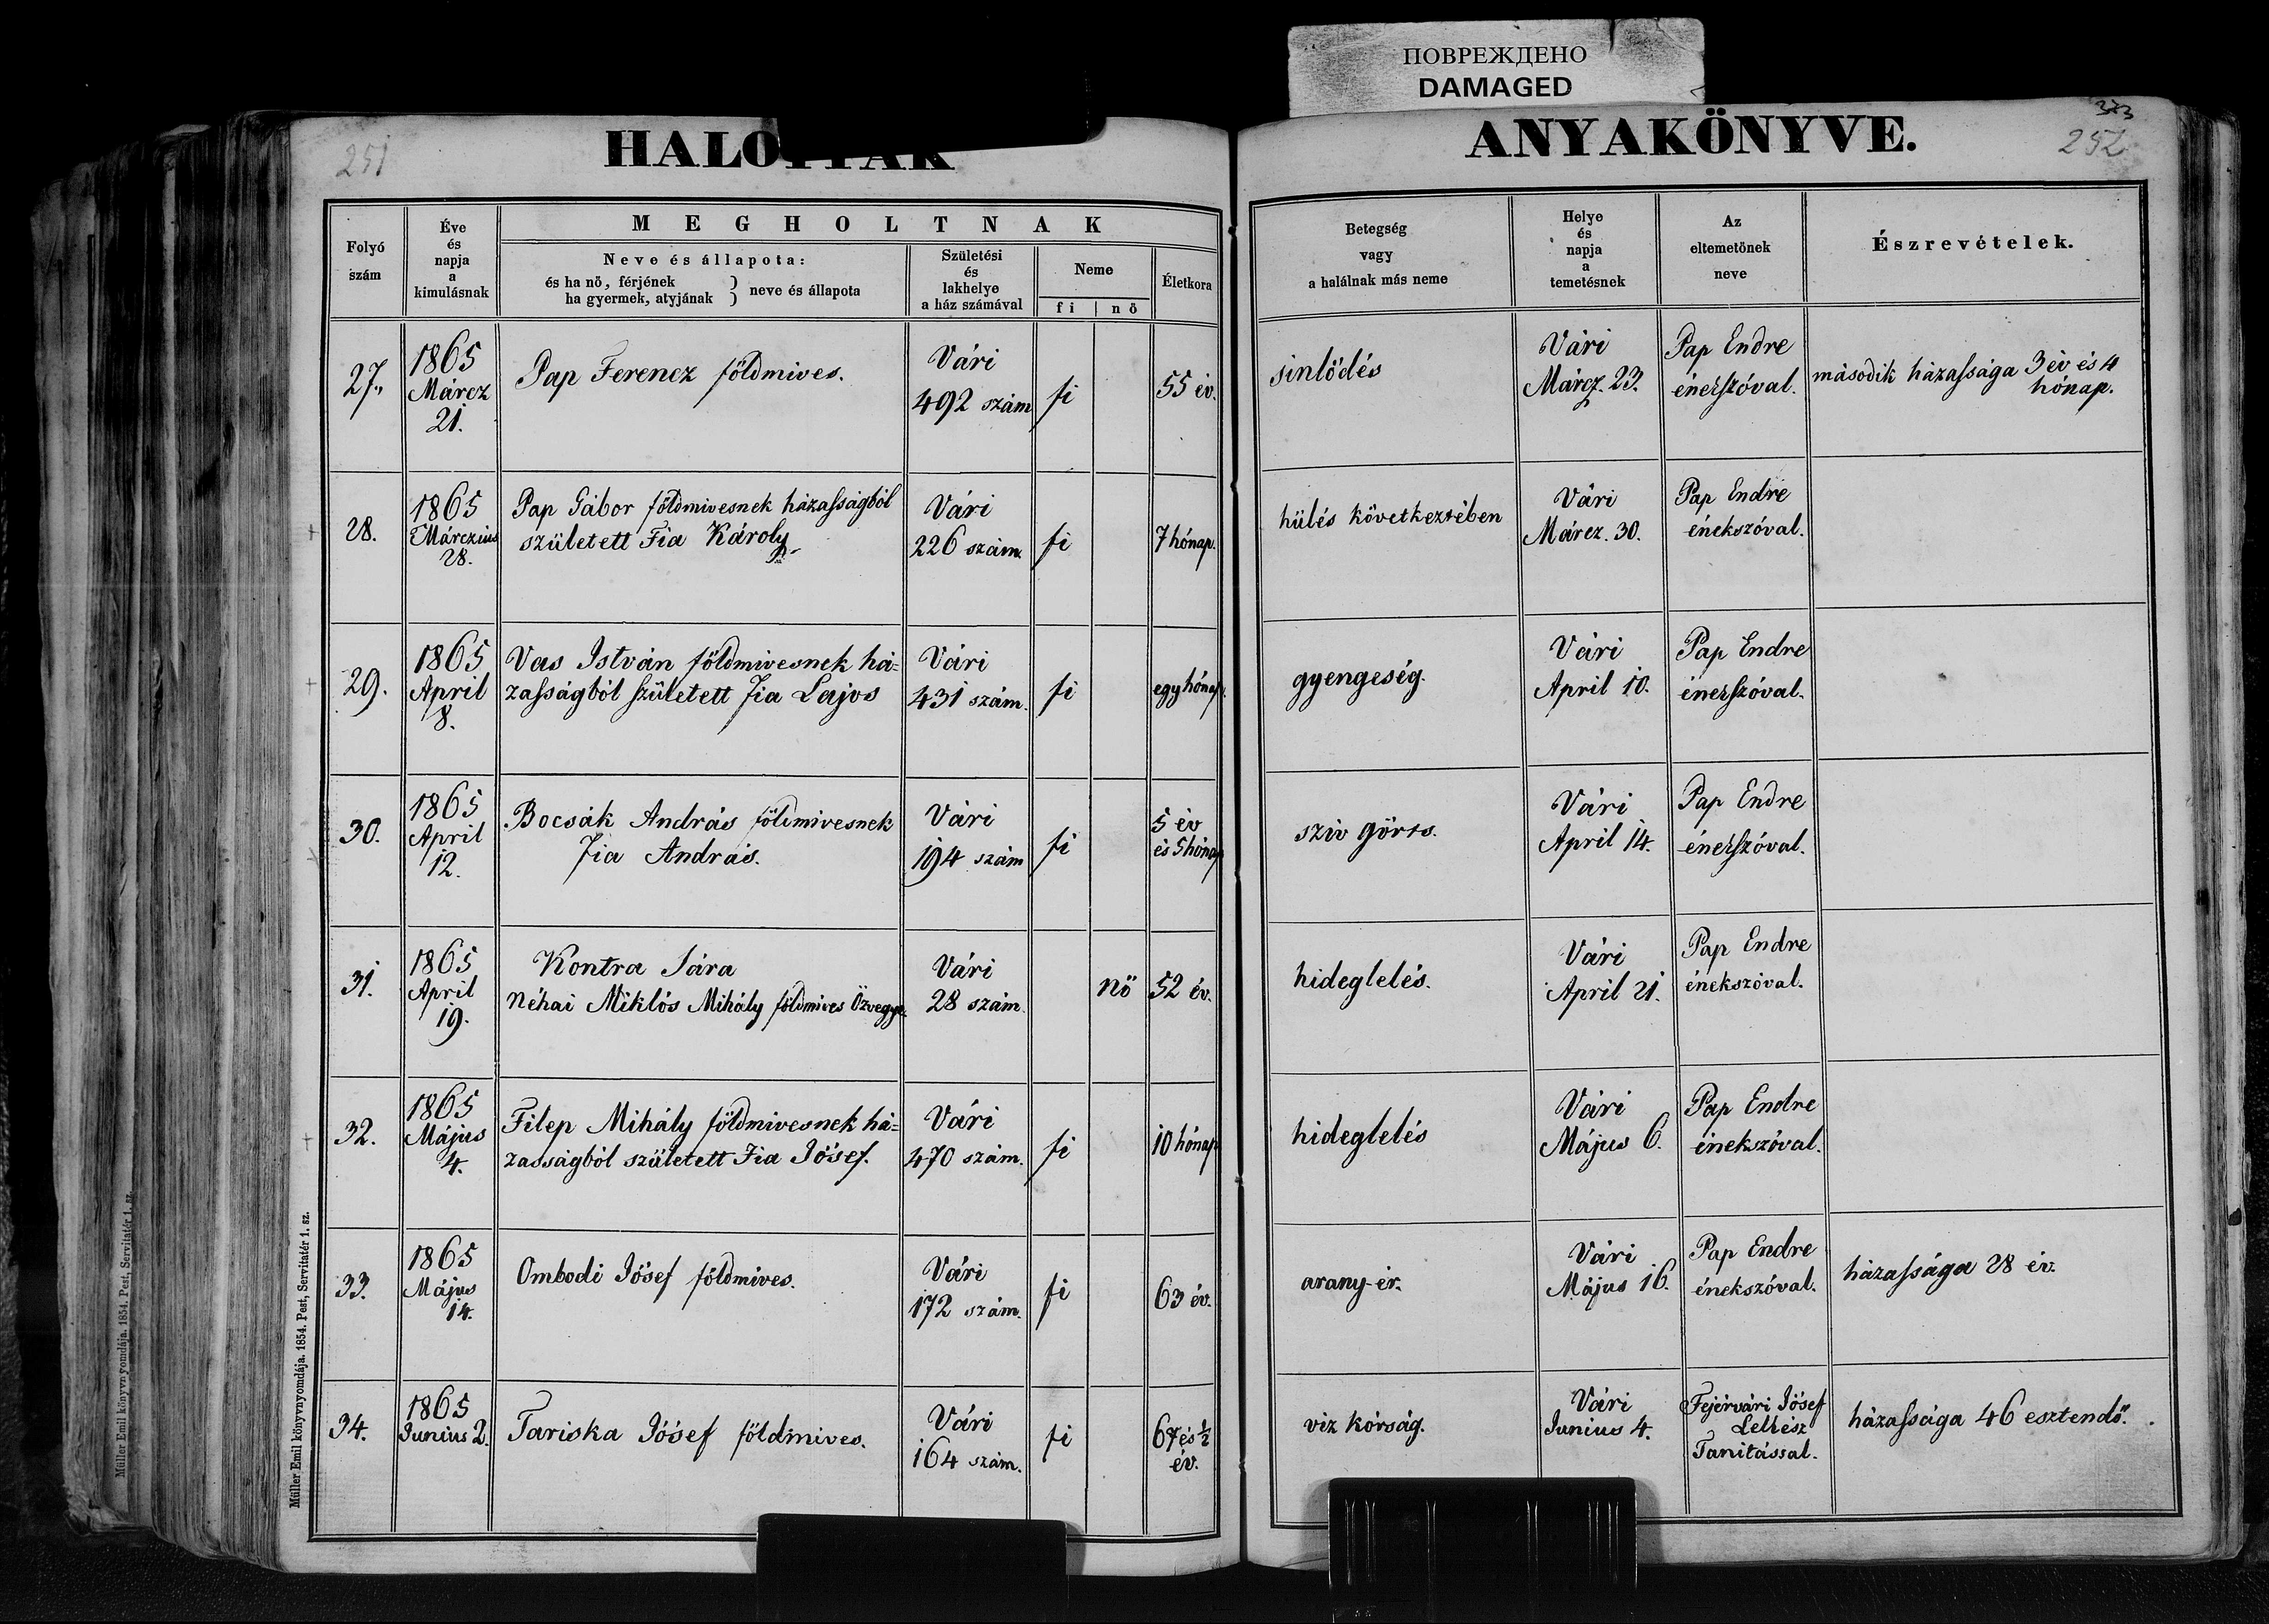 ПОВРЕЖДЕНО
DAMAGED
251
HALOTTAK
ANYAKÖNYVE.
252
Folyó
szám
Éve
és
napja
a
kimulásnak
MEGHOLTNAK
Neve és állapota:
és ha nő, férjének
ha gyermek, atyjának } neve és állapota
Születési
és
lakhelye
a ház számával
Neme
fi | nő
Életkora
Betegség
vagy
a halálnak más neme
Helye
és
napja
a
temetésnek
Az
eltemetőnek
neve
Észrevételek.
27.
1865
Márcz
21.
Pap Ferencz földmives.
Vári
492 szám
fi
55 év.
sinlődés
Vári
Márcz. 23.
Pap Endre
énekszóval.
második házassága 3 év és 4
hónap.
28.
1865
Márczius
28.
Pap Gábor földmivesnek házasságból
született Fia Károly
Vári
226 szám.
fi
7 hónap.
hülés következtében
Vári
Márcz. 30.
Pap Endre
énekszóval.
29.
1865
April
8.
Vas István földmivesnek há=
zasságból született Fia Lajos
Vári
431 szám.
fi
egy hónap.
gyengeség.
Vári
April 10.
Pap Endre
énekszóval.
30.
1865
April
12.
Bocsák András földmivesnek
Fia András.
Vári
194 szám
fi
5 év
és 5 hónap
sziv görts.
Vári
April 14.
Pap Endre
énekszóval.
31.
1865
April
19.
Kontra Sára
Néhai Miklós Mihály földmives Özvegye.
Vári
28 szám.
nő
52 év.
hideglelés.
Vári
April 21.
Pap Endre
énekszóval.
32.
1865
Május
4.
Filep Mihály földmivesnek há=
zasságból született Fia Jósef.
Vári
470 szám.
fi
10 hónap
hideglelés
Vári
Május 6.
Pap Endre
énekszóval.
33.
1865
Május
14.
Ombodi Jósef földmives.
Vári
172 szám.
fi
63 év.
arany-ér.
Vári
Május 16.
Pap Endre
énekszóval.
házassága 28 év.
34.
1865
Junius 2.
Tariska Jósef földmives.
Vári
164 szám.
fi
67 és ½
év.
viz kórság.
Vári
Junius 4.
Fejérvári Jósef
Lelkész
Tanitással.
házassága 46 esztendő.
Müller Emil könyvnyomdája. 1854. Pest, Servitatér 1. sz.
Müller Emil könyvnyomdája. 1854. Pest, Servitatér 1. sz.